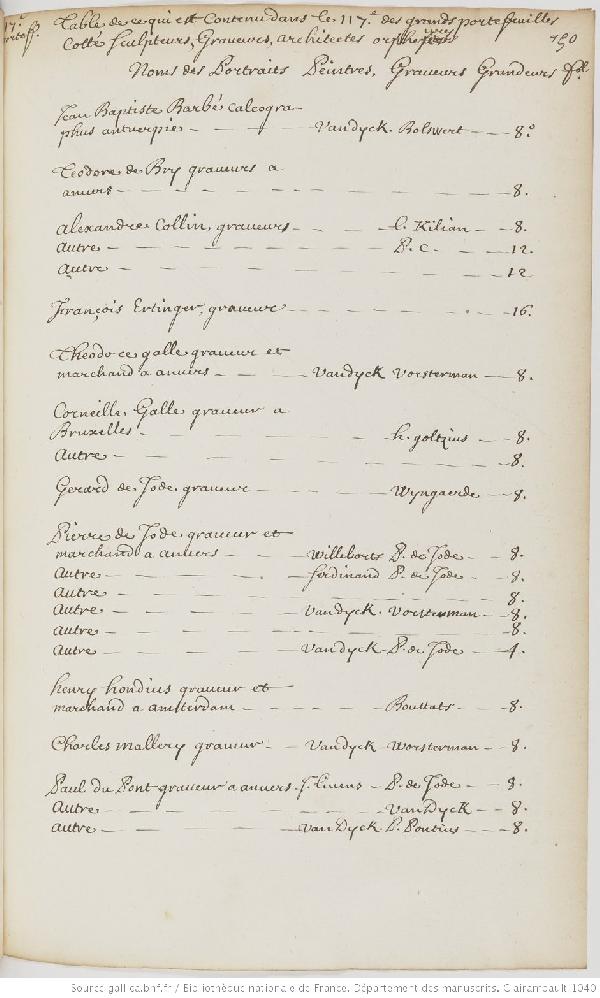 Table de ce qui est Contenu dans le 117.e des grands portefeuilles
Cotté Sculpteurs, Graveurs, architectes
150
Noms des Portraits Peintres, Graveurs Grandeurs fol
Jean Baptiste Barbé calcogra-
phus antuerpie - - - - Vandyck. Bolswert - - - 8.o
Teodore de Bry graveurs a
anvers - - - - - - - - - - 8.
alexandre Collin, graveurs - - - l. Kilian - - 8.
autre - - - - - - - P. c. - - - 12.
autre - - - - - - - - - - 12
François Ertinger, graveur - - - - - - - 16.
Theodore galle graveur et
marchand a anvers - - - - Vandyck Vorsterman - - 8.
Corneille, Galle graveur a
Bruxelles - - - - - - h. goltzius - - 8.
autre - - - - - - - - - - 8.
Gerard de Jode graveur - - - - Wyngaerde - - 8.
Pierre de Jode graveur et
marchand a anvers - - - Willeborts P. de Jode - - 8.
autre - - - - - ferdinand P. de Jode - - 8.
autre - - - - - - - - - - 8.
autre - - - - - Vandyck. Vorsterman - - 8.
autre - - - - - - - - - - 8.
autre - - - - - Vandyck P. de Jode - - 4.
henry hondius graveur et
marchand a amsterdam - - - - - Bouttats - - 8.
Charles mallery graveur - - Vandyck Worsterman - - 8.
Paul du Pont graveur a anvers. J. Livens - P. de Jode - - 8.
autre - - - - - - - VanDyck - - 8.
autre - - - - - VanDyck P. Pontius - - - 8.
Source gallica.bnf.fr / Bibliothèque nationale de France. Département des manuscrits. Clairambault 1040